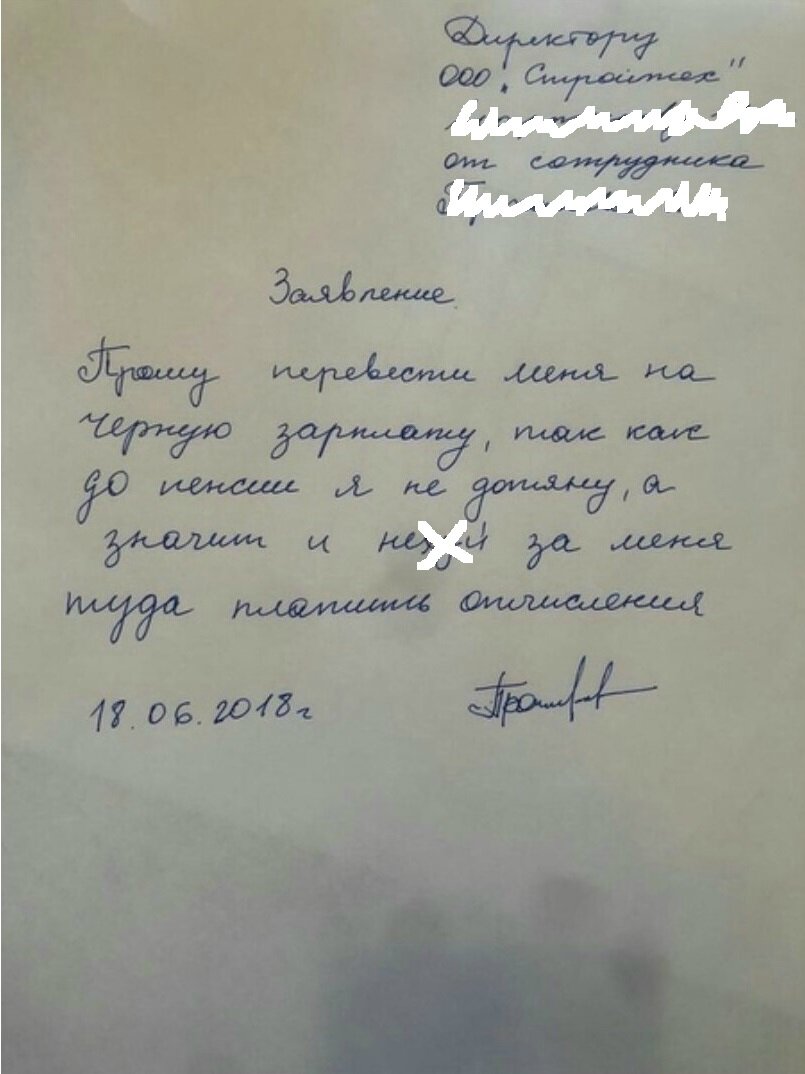 Директору
ООО "Стройтех"
от сотрудника
Заявление
Прошу перевести меня на
черную зарплату, так как
до пенсии я не дотяну, а
значит и нехуй за меня
туда платить отчисления
18.06.2018г